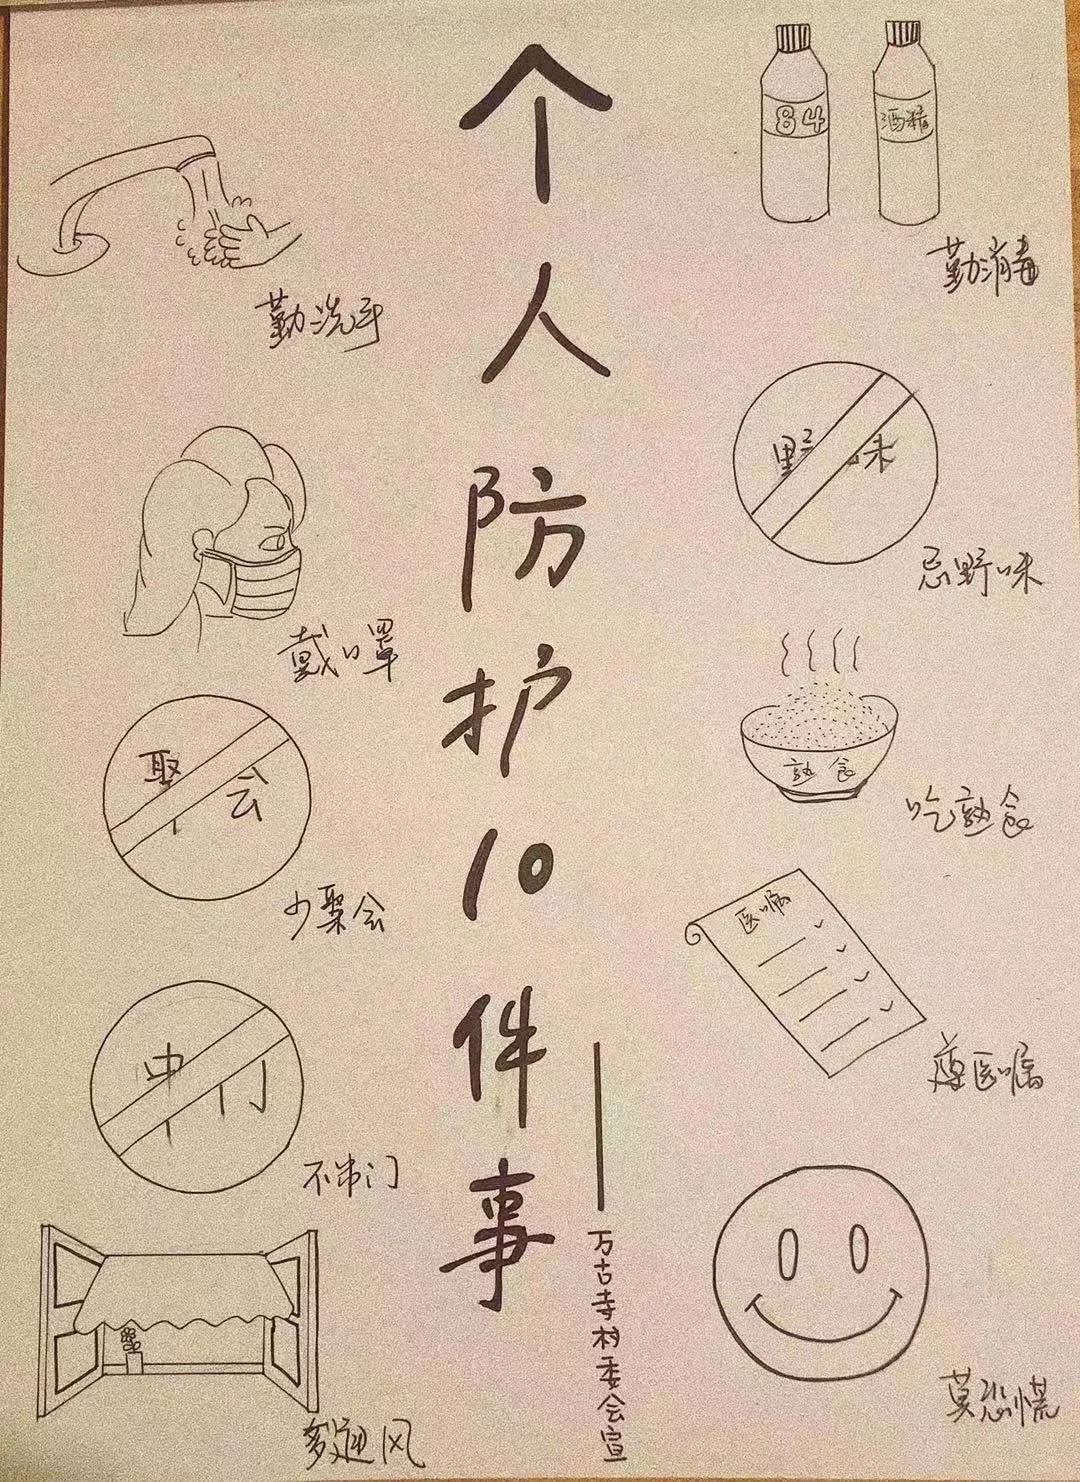 个人防护10件事
——万古寺村委会宣
勤洗手
戴口罩
聚会
少聚会
串门
不串门
多通风
84
酒精
勤消毒
野味
忌野味
熟食
吃熟食
医嘱
遵医嘱
莫恐慌